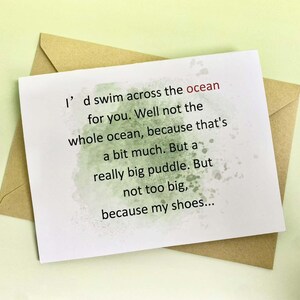 I’d swim across the ocean
for you. Well not the
whole ocean, because that's
a bit much. But a
really big puddle. But
not too big,
because my shoes...